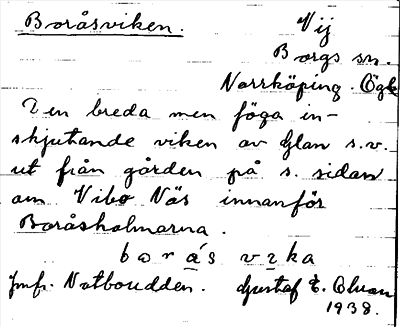 Boråsviken.
Vij
Borgs sn.
Norrköping. Ögl
Den breda men föga in-
skjutande viken av Glan s.v.
ut från gården på s. sidan
om Vibo Näs innanför
Boråsholmarna.
bɷrás vɩka
Jmfr. Notboudden. Gustaf E.
1938.